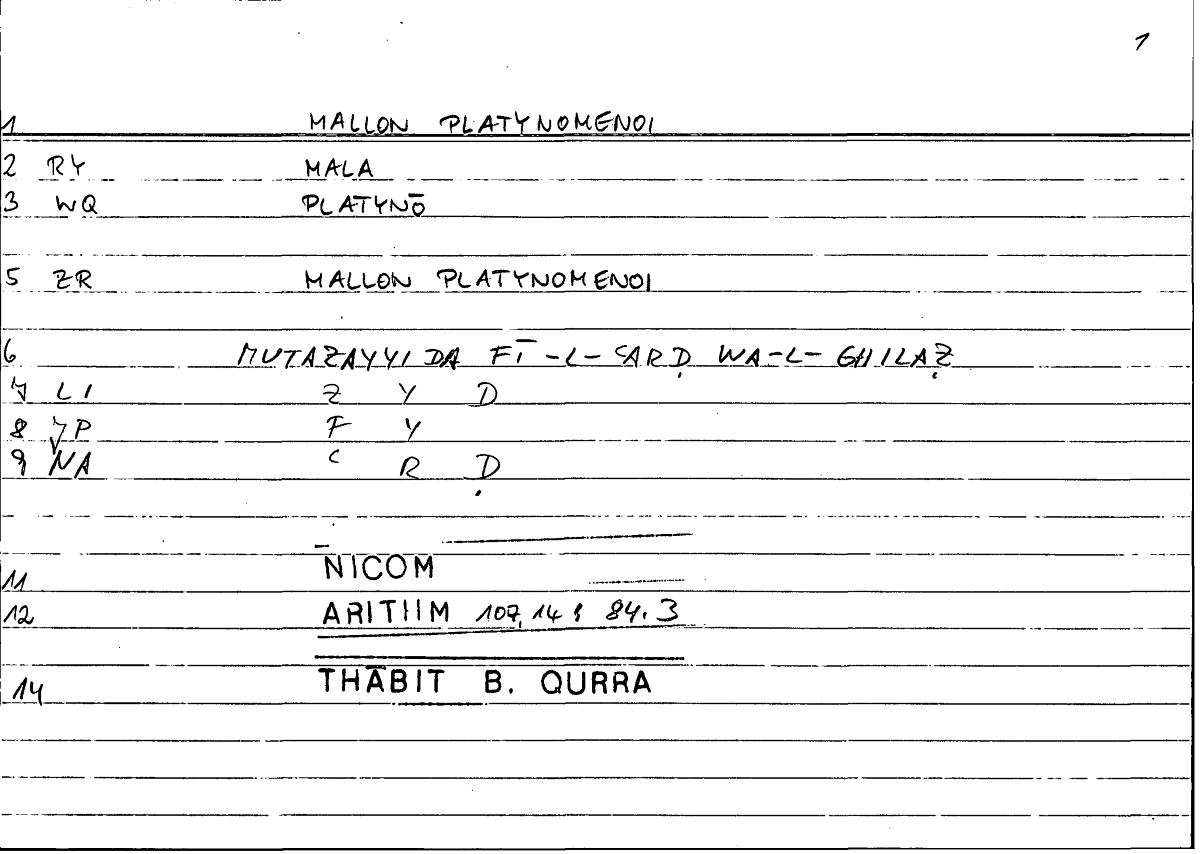 1
1 MALLON PLATYNOMENOI
2 RY MALA
3 WQ PLATYNŌ
5 ZR MALLON PLATYNOMENOI
6 MUTAZAYYIDA FĪ-L-ʿARḌ WA-L-GHILAẒ
7 LI Z Y D
8 JP F Y
9 NA ʿ R Ḍ
11 NICOM
12 ARITHM 107,14 : 84.3
14 THĀBIT B. QURRA